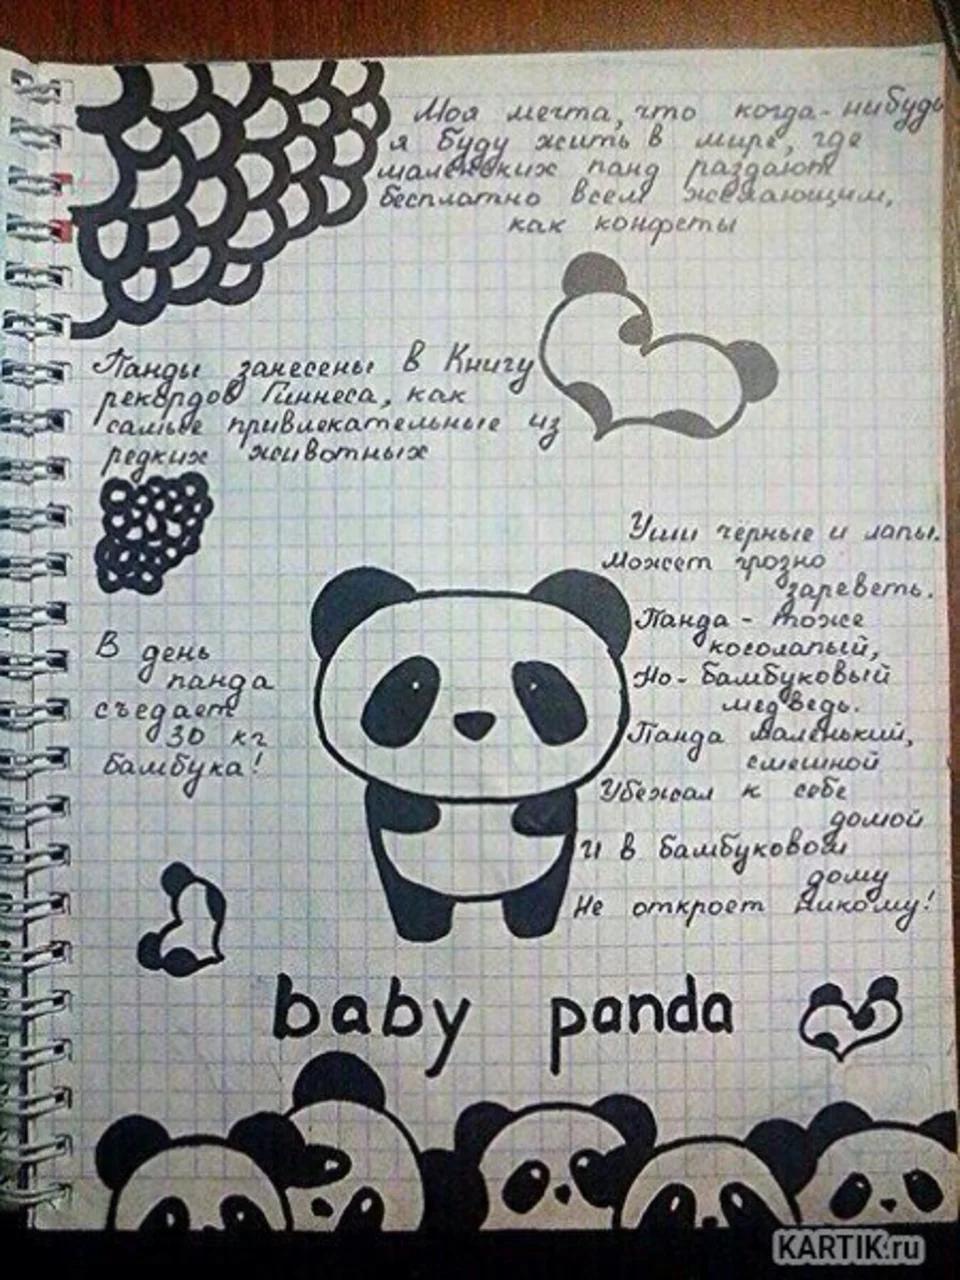 Моя мечта, что когда-нибудь
я буду жить в мире, где
маленьких панд раздают
бесплатно всем желающим,
как конфеты
Панды занесены в Книгу
рекордов Гиннеса, как
самые привлекательные из
редких животных
В день
панда
съедает
30 кг
бамбука!
Уши черные и лапы.
Может грозно
зареветь.
Панда - тоже
косолапый,
Но - бамбуковый
медведь.
Панда маленький,
смешной
Убежал к себе
домой
И в бамбуковом
дому
Не откроет никому!
baby panda
KARTIK.ru